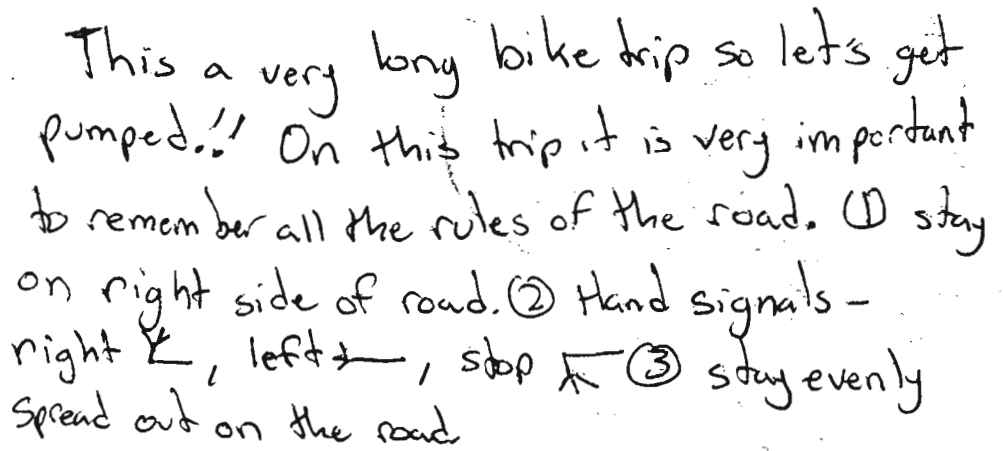 This a very long bike trip so let's get
pumped!! On this trip it is very important
to remember all the rules of the road. ① stay
on right side of road. ② Hand signals -
right , left , stop ③ stay evenly
Spread out on the road